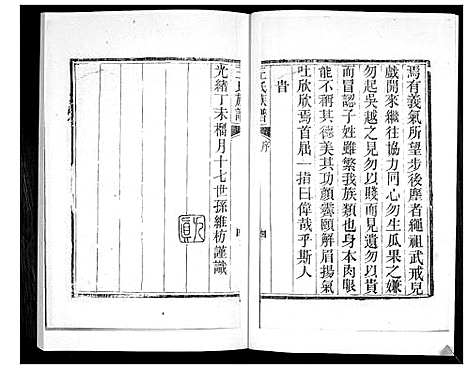 焉有義氣所望步後塵者繩祖武戒兒
戲開來繼往協力同心勿生瓜果之嫌
勿起吳越之見勿以賤而見遺勿以貴
而冒認子姓雖繁我族類也身本肉眼
能不稱其德美其功顏霽頤解眉揚氣
吐欣欣焉首屈一指曰偉哉乎斯人
旹
王氏族譜 序 四
光緒丁未榴月十七世孫維枋謹識